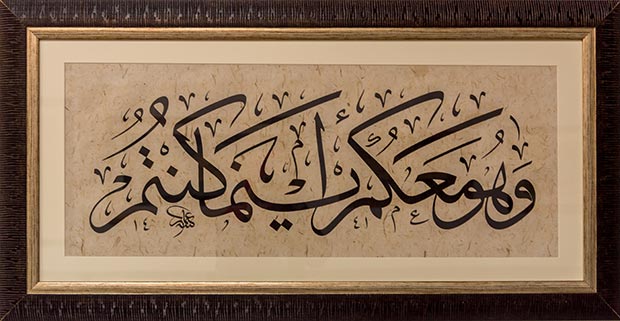 وَهُوَ مَعَكُمْ أَيْنَمَا كُنتُمْ